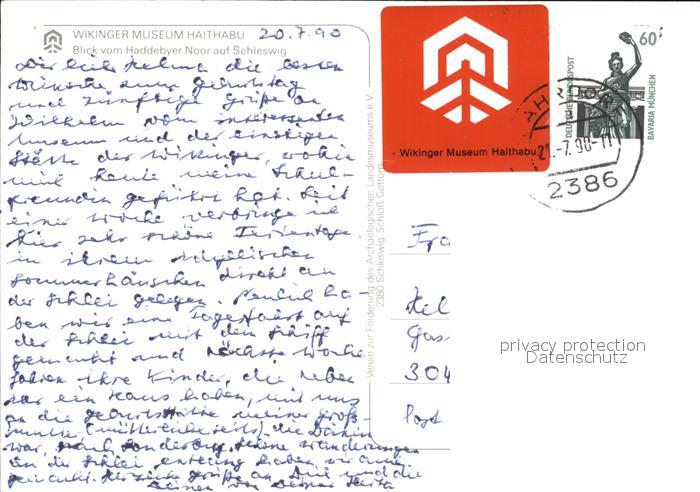 WIKINGER MUSEUM HAITHABU
20.7.90
Blick vom Haddebyer Noor auf Schleswig
die besten
Wünsche zum Geburtstag
und zünftige Grüße an
Wilhelm vom interessanten
Museum und der einstigen
Stätte der Wikinger, wohin
mich heute meine Schul-
freundin geführt hat. Seit
einer Woche verbringe ich
hier sehr schöne Ferientage
in ihrem idyllischen
Sommerhäuschen direkt an
der Schlei gelegen. Neulich ha-
ben wir eine Tagesfahrt auf
der Schlei mit dem Schiff
gemacht und nächste Woche
fahren ihre Kinder, die neben
an ein Haus haben, mit uns
an die Geburtsstätte meiner Groß-
mutter (mütterlicherseits), die Dänin
war, nach Sonderburg. Schöne Wanderungen
an der Schlei entlang haben wir auch
gemacht. Herzliche Grüße an Dich und die
Deinen von Deiner
Verein zur Förderung des Archäologischen Landesmuseums e.V.
2380 Schleswig, Schloß Gottorf
Wikinger Museum Haithabu
DEUTSCHE BUNDESPOST
60
BAVARIA MÜNCHEN
-7.90-11
2386
Fra
Hel
Gas
304
Post
privacy protection
Datenschutz